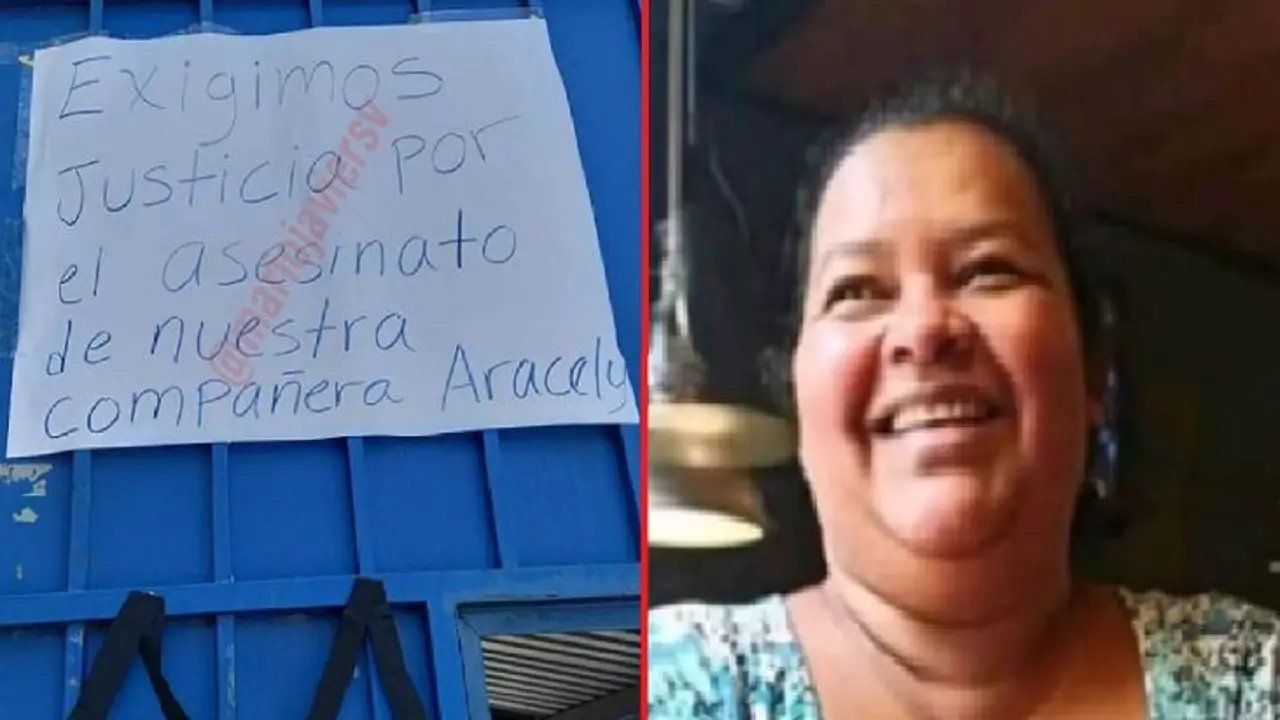 Exigimos
Justicia por
el asesinato
de nuestra
compañera Aracely